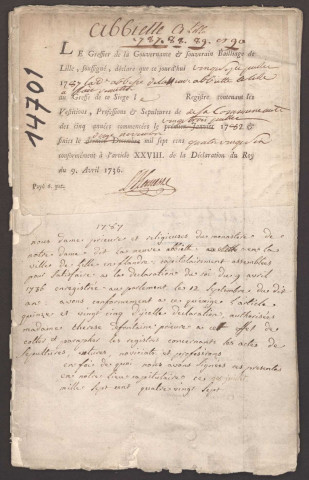 abbiette a Lille
1787. 88. 89. 90
14701
LE Greffier de la Gouvernance & souverain Bailliage de
Lille, soussigné, déclare que ce jourd'hui
1787
au Greffe de ce Siege 1 Registre contenant les
Vestures, Professions & Sepultures de la Communauté
des cinq années commencées le 1787 &
finies le mil sept cent quatre vingt
conformément à l'article XXVIII. de la Déclaration du Roy
du 9. Avril 1736.
Payé 6. pat.
1787
nous dame prieure et religieuses du monastere de
notre dame des en la
ville de Lille en flandre, capitulairement assemblees
pour satisfaire a la declaration du roi du 9 avril
1736 enregistrée au parlement le 12 septembre du dit
an avons conformement a ce qu exige l article
quinze et vingt cinq d icelle declaration, authorisées
madame therese defontaine prieure a effet de
cotter et parapher les registres concernants les actes de
sepultures, vetures, noviciats et professions
en foi de quoi nous avons signees ces presentes
en notre lieu capitulaire ce
mille sept cent quatre-vingt sept